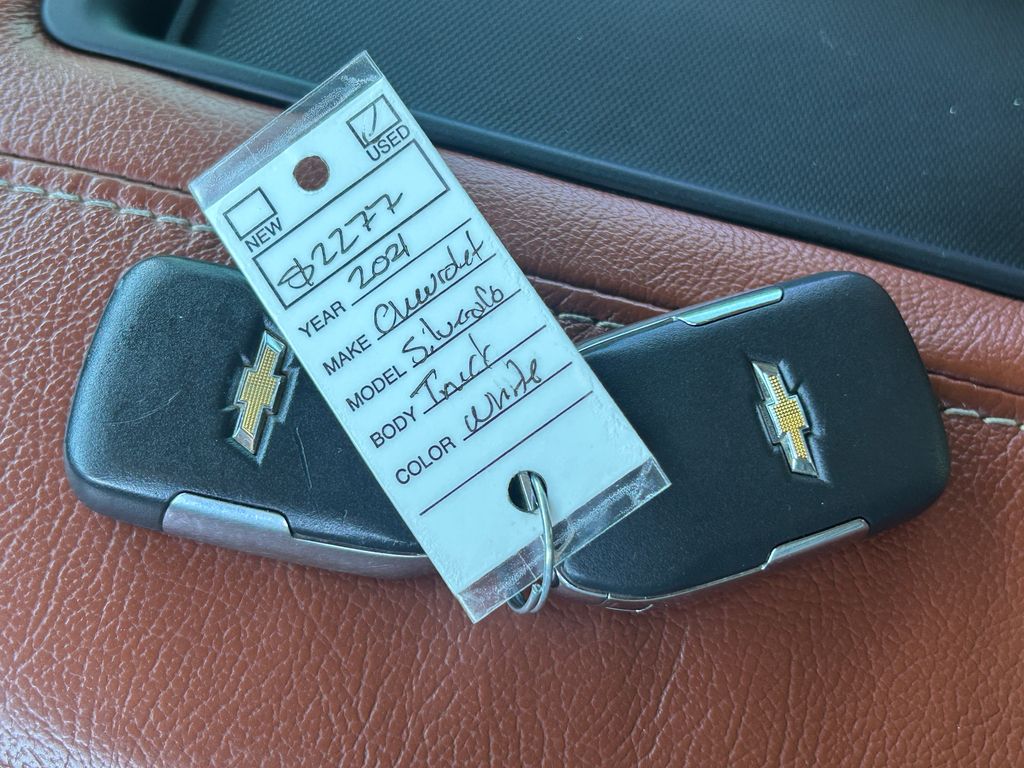 NEW USED
$2277
YEAR 2021
MAKE Chevrolet
MODEL Silverado
BODY Truck
COLOR White